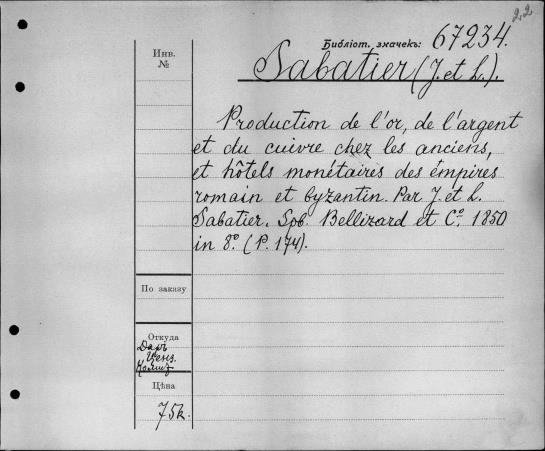 2,2
Библіот. значекъ: 67234.
Инв.
№
Sabatier (J. et L.).
Production de l'or, de l'argent
et du cuivre chez les anciens,
et hôtels monétaires des émpires
romain et byzantin. Par J. et L.
Sabatier. Spb. Bellizard et Cº. 1850
in 8º. (P. 174).
По заказу
Откуда
Даръ
Ценз.
Цѣна
75к.